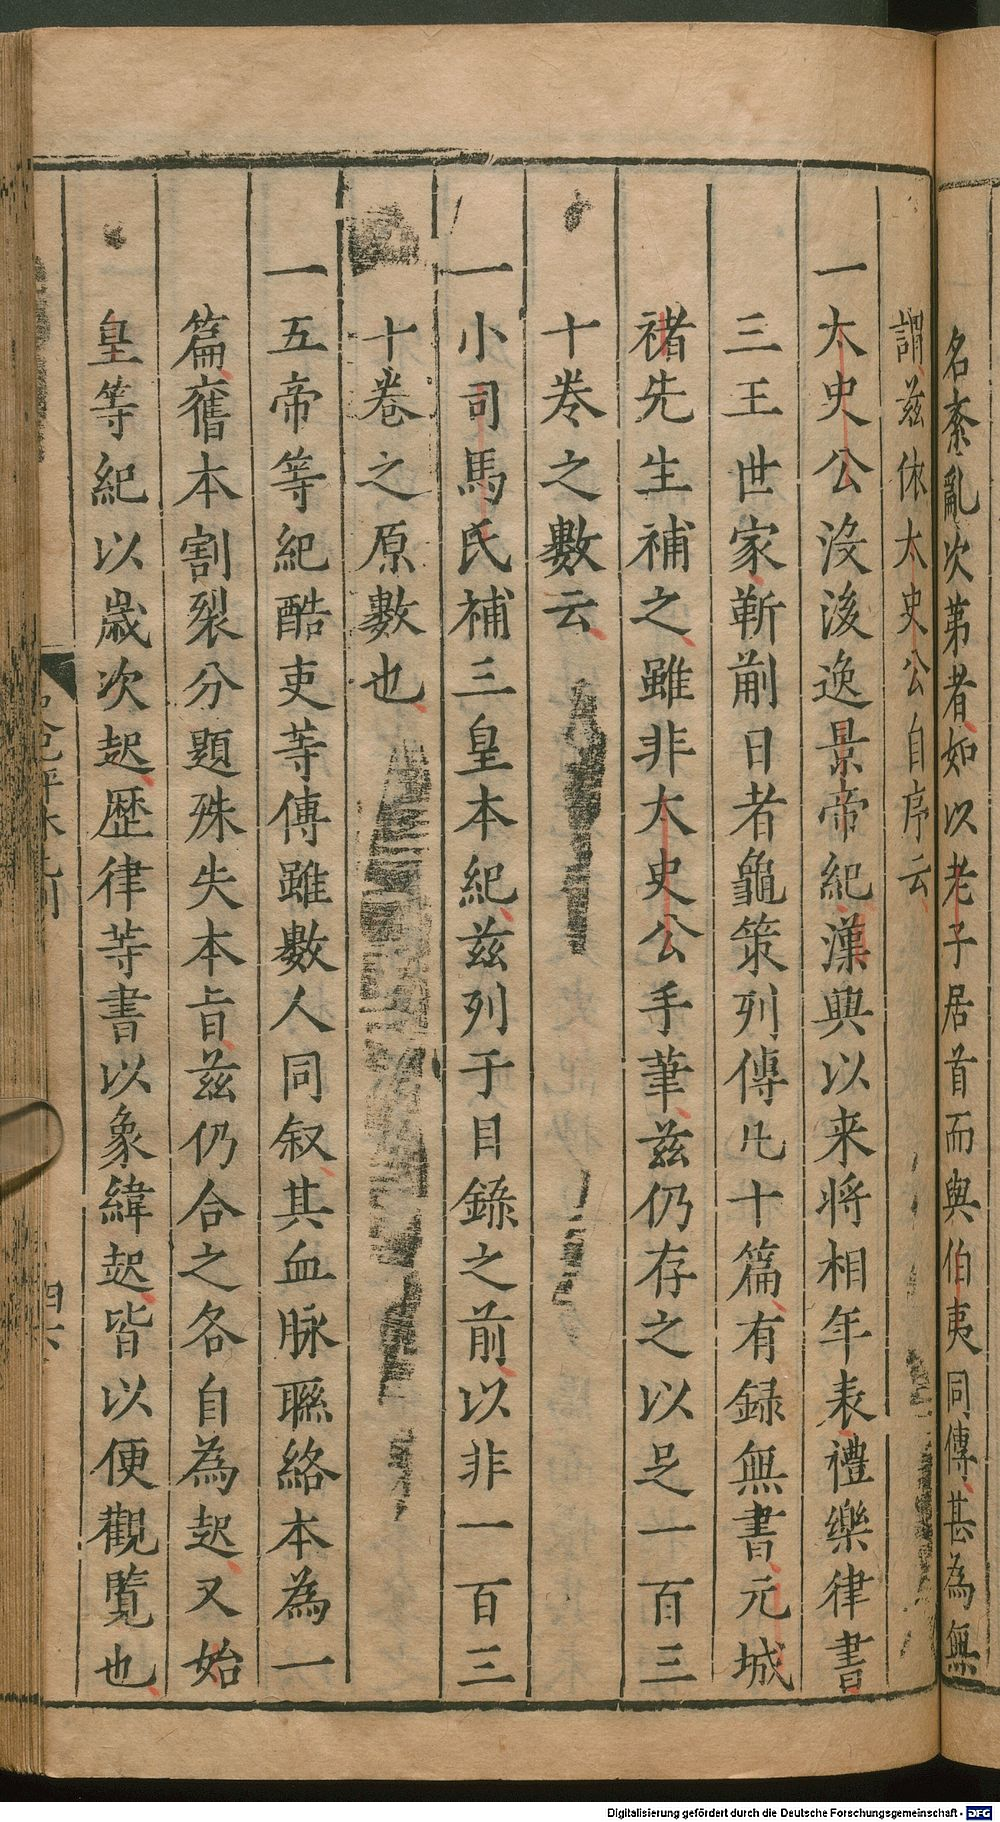 名紊亂次第者如以老子居首而與伯夷同傳甚為無
謂茲依太史公自序云
一太史公沒後逸景帝紀漢興以来將相年表禮樂律書
三王世家靳蒯日者龜策列傳凡十篇有録無書元城
褚先生補之雖非太史公手筆茲仍存之以足一百三
十卷之數云
一小司馬氏補三皇本紀茲列于目錄之前以非一百三
十卷之原數也
一五帝等紀酷吏等傳雖數人同叙其血脉聯絡本為一
篇舊本割裂分題殊失本旨茲仍合之各自為起又始
皇等紀以歲次起歷律等書以象緯起皆以便觀覽也
Digitalisierung gefördert durch die Deutsche Forschungsgemeinschaft - DFG